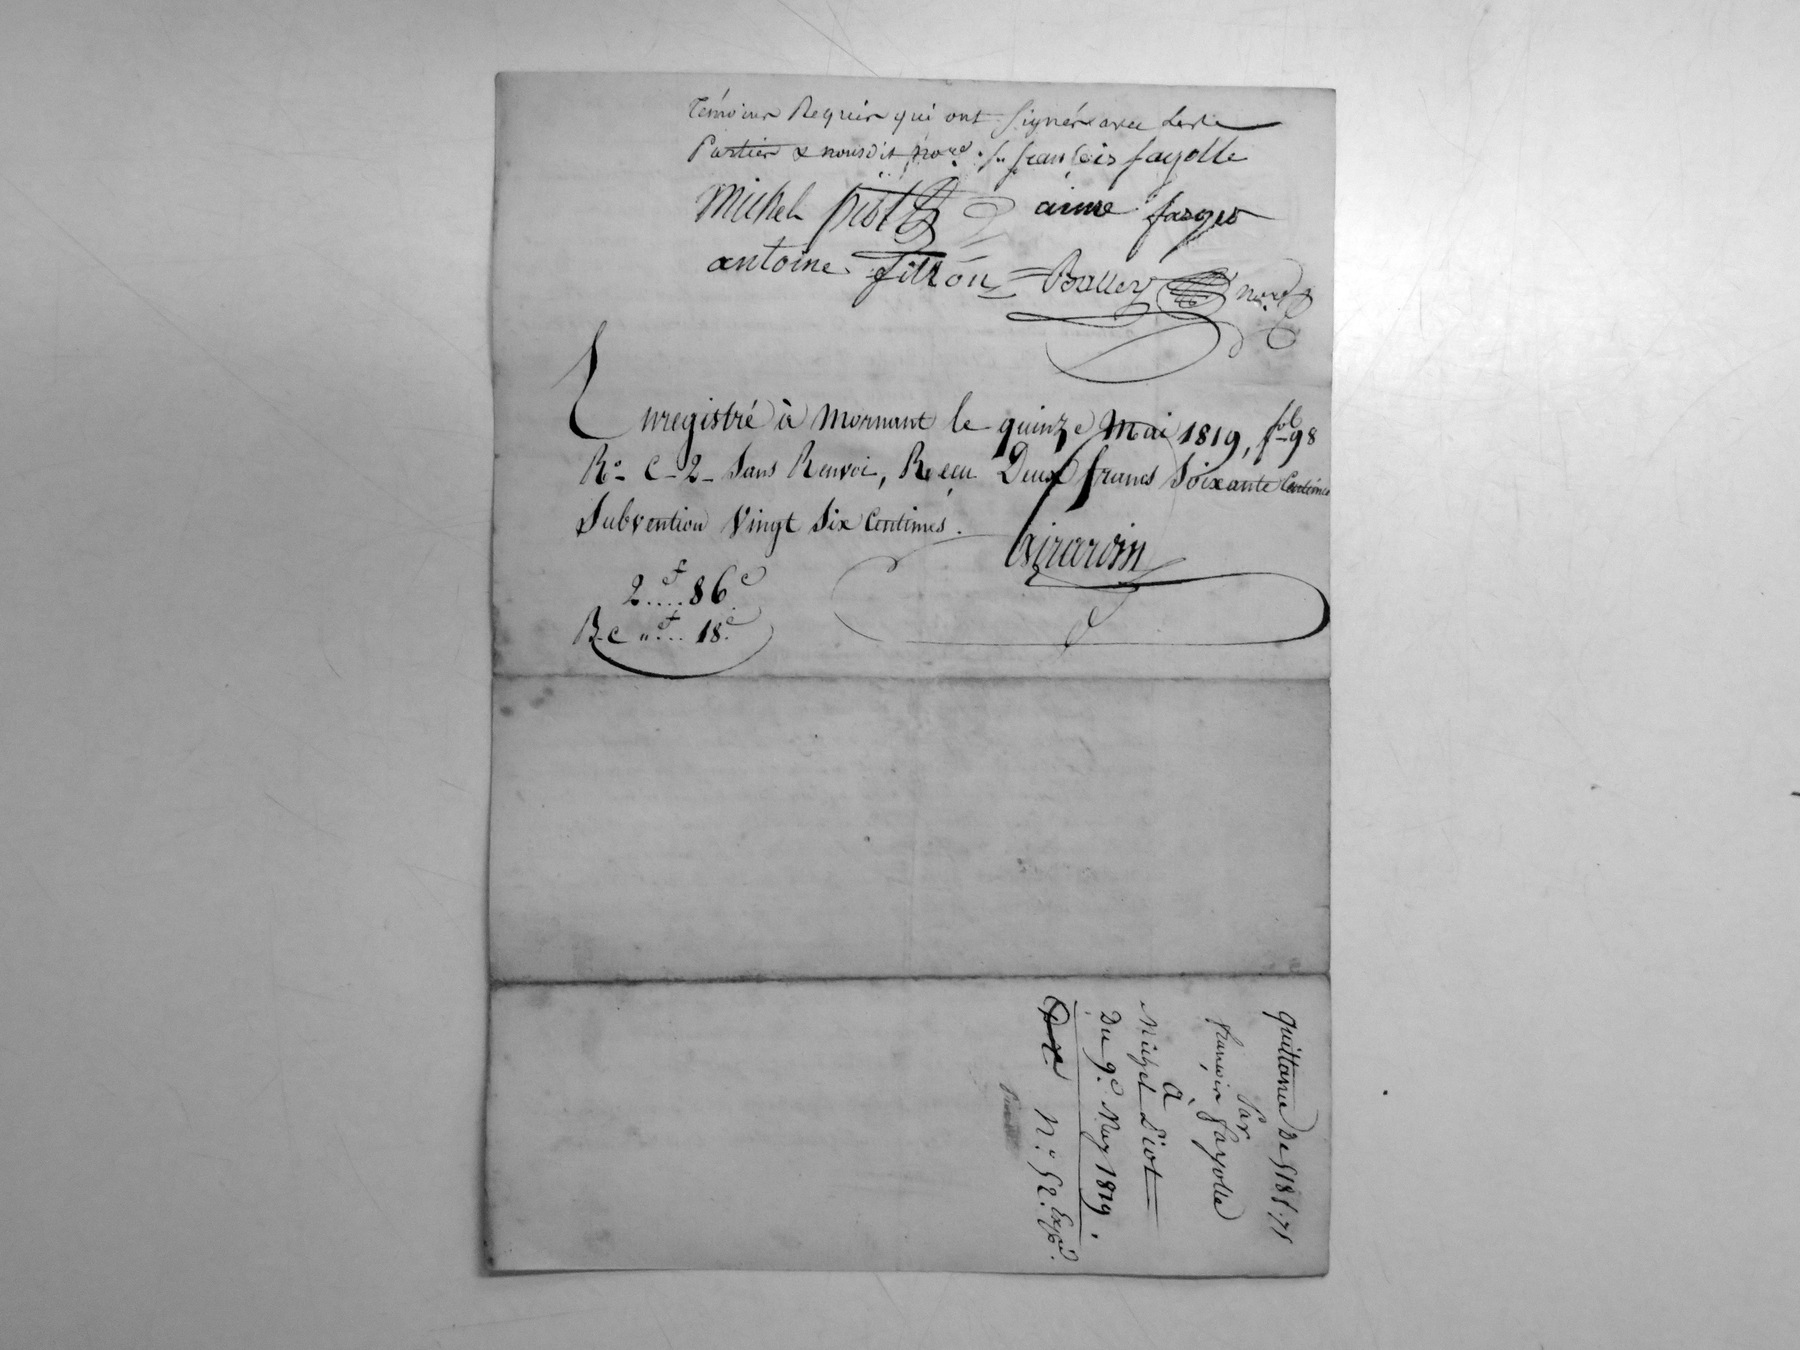 Témoins Requis qui ont Signés avec Lesde
Parties & nousdit no.re f. françois fayolle
Michel piot aime farges
antoine Balley no.re
Enregistré à Mornant le quinze Mai 1819, fol 98
R.o C-2- Sans Renvoi, Reçu Deux francs Soixante Centimes
Subvention Vingt Six Centimes.
Girardin
2.f...86.c
R-c "f... 18.c
quittance De 518f.75
Par
François fayolle
à
Michel Piot
Du 9.e May 1819.
N.o 52. Exp.d